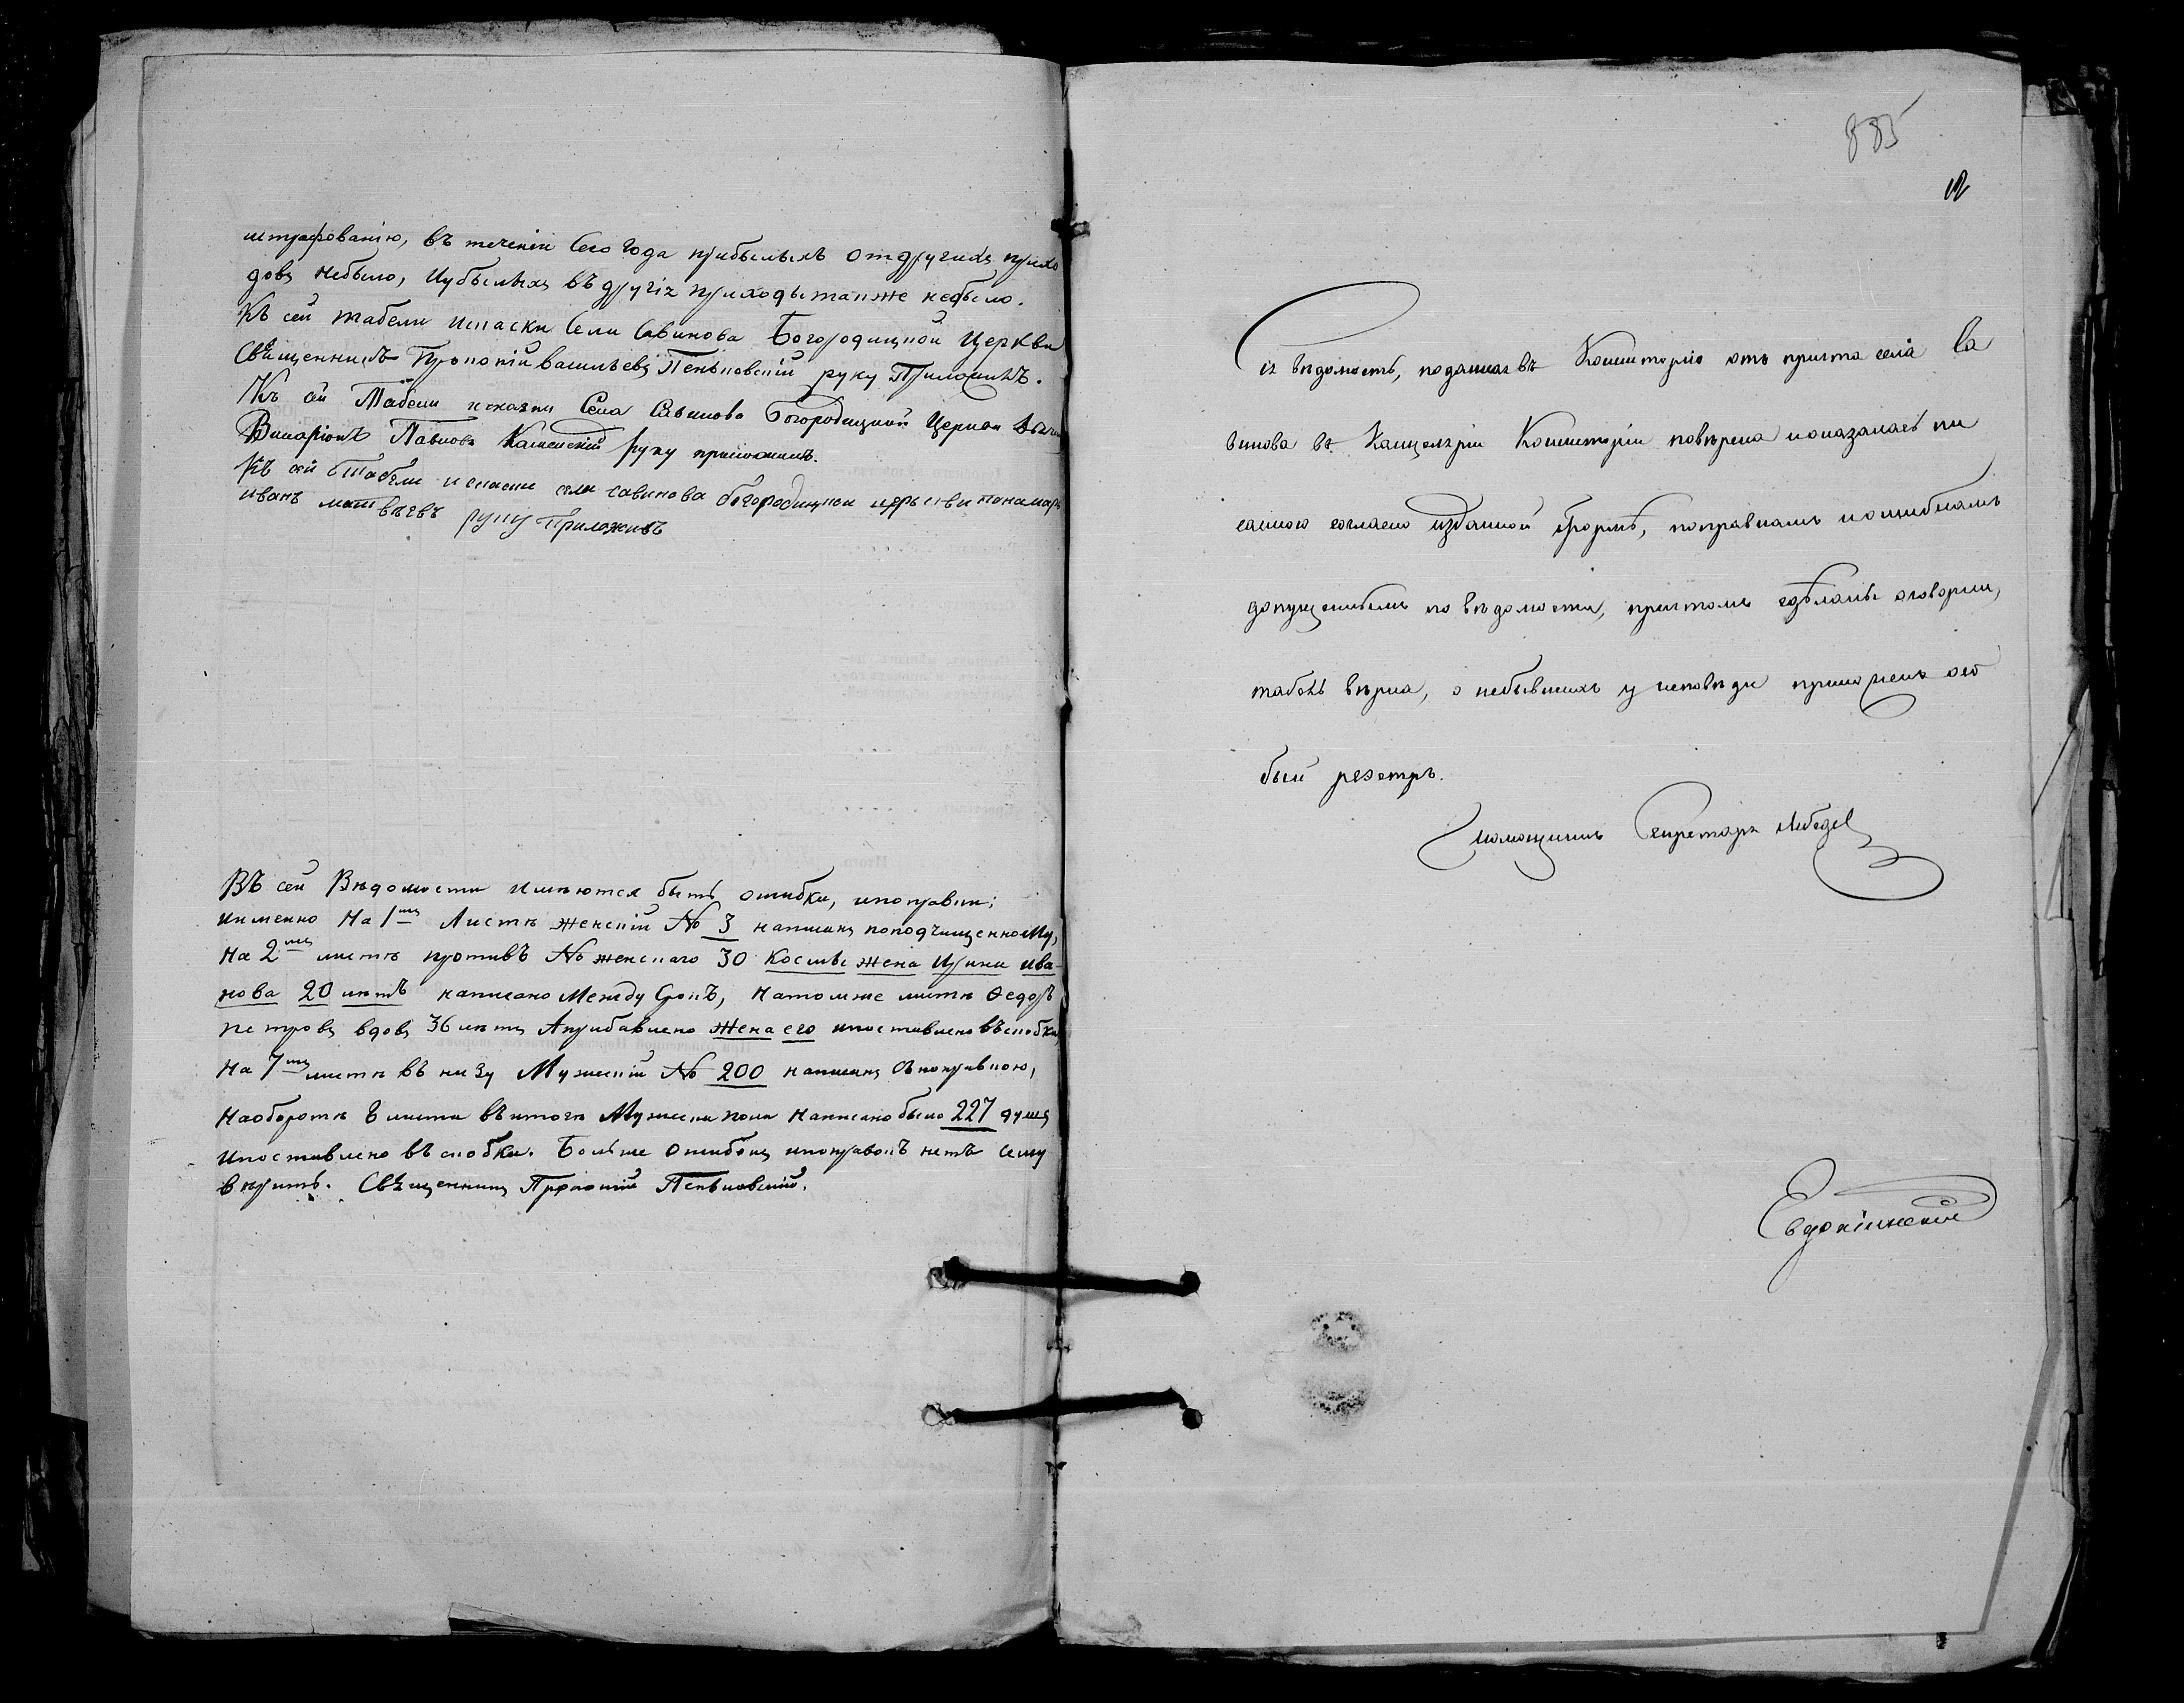 штрафованію, въ теченіи Сего года прибылыхъ отдругихъ прихо
довъ небыло, Иубылыхъ въ другіх приходы также небыло.
Къ сей табели искаски Села Савинова Богородицкой Церкви
Священникъ Прокопій васильевъ Пеньковскій руку Приложилъ.
Къ сей Табели исказки Села Савинова Богородицкой Церкви
Илларіонъ Павловъ Каменскій руку приложилъ.
Къ сей Табели искаски села савинова богородицкой церькви панамарь
иванъ матвѣевъ руку Приложилъ
Въ сей Вѣдомости Имѣются быть ошибки, ипоправки;
именно На 1мъ Листѣ женскій № 3 написанъ поподчищенному,
На 2мъ листѣ противъ № женскаго 30 Космы жена Ирина Ива-
нова 20 лѣтъ написано Между Срокъ, Натомже листѣ Ѳедоръ
петровъ вдовъ 36 лѣтъ Априбавлено жена его ипоставлено въскобки
На 7мъ листѣ въ низу Мужскій № 200 написанъ Споправкою,
Наоборотѣ 8 листа въитогѣ Мужска пола Написано было 227 душъ
Ипоставлено въ скобки. Больше Ошибокъ ипоправокъ нетъ Сему
вѣрить. Священникъ Прокопій Пеньковскій.
885
12
Сія вѣдомость, поданная въ Консисторію отъ причта села Са
винова въ Канцеляріи Консисторіи повѣрена иоказалась пи
санною согласно изданной Формѣ, поправкамъ иошибкамъ
допущеннымъ по вѣдомости, причтомъ сдѣланы оговорки,
табель вѣрна, о небывшихъ у исповѣди приложенъ осо
бый реэстръ.
Помощникъ Секретаря Лебедев
Евдокимскій